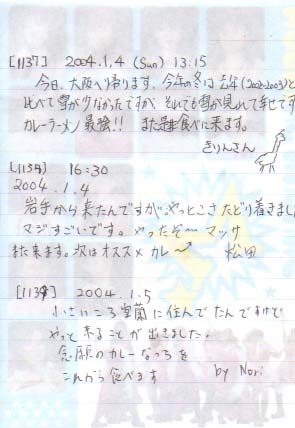 [1137] 2004.1.4 (Sun) 13:15
今日、大阪へ帰ります。今年の冬は去年(2002-2003)と
比べて雪が少なかったですが、それでも雪が見れて幸せです
カレーラーメン最強!! また是非食べに来ます。
きりんさん
[1138] 16:30
2004.1.4
岩手から来たんですが、やっとこさたどり着きました
マジすごいです。やったぞ〜 マッサ
また来ます。次はオススメカレ〜
松田
[1139] 2004.1.5
小さいころ室蘭に住んでたんですけど
やっと来ることが出きました。
念願のカレーなっつを
これから食べます
by Nori